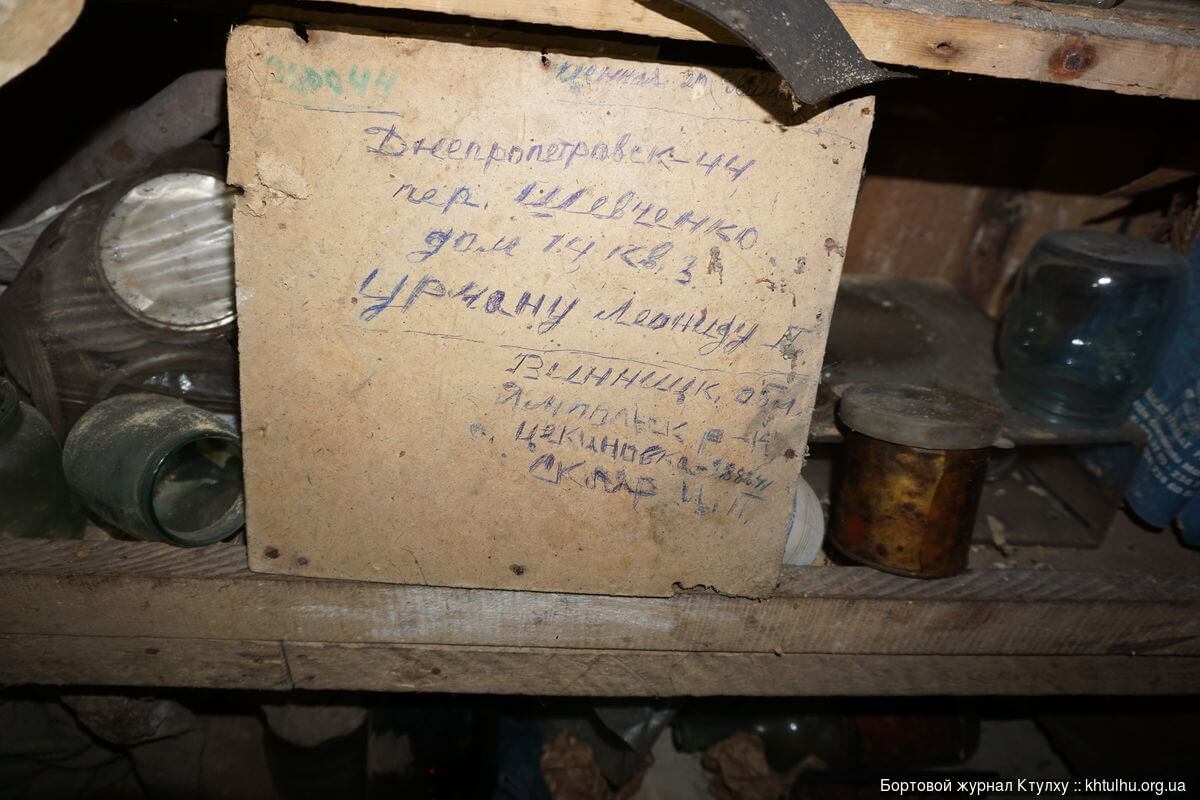 320044
ценная 2р
Днепропетровск-44
пер. Шевченко
дом 14 кв. 3
Урману Леониду П.
Винницк. обл
Ямпольск р-н
с. Цекиновка
Скляр
Бортовой журнал Ктулху :: khtulhu.org.ua